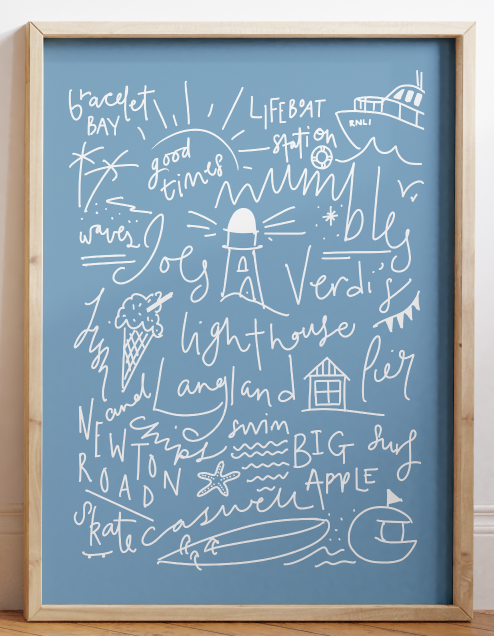 bracelet
BAY
LIFEBOAT
station
RNLI
good
times
mumbles
waves
Joes
Verdi's
lighthouse
Pier
Langland
and
chips
NEWTON
ROAD
swim
BIG
APPLE
surf
skate
caswell